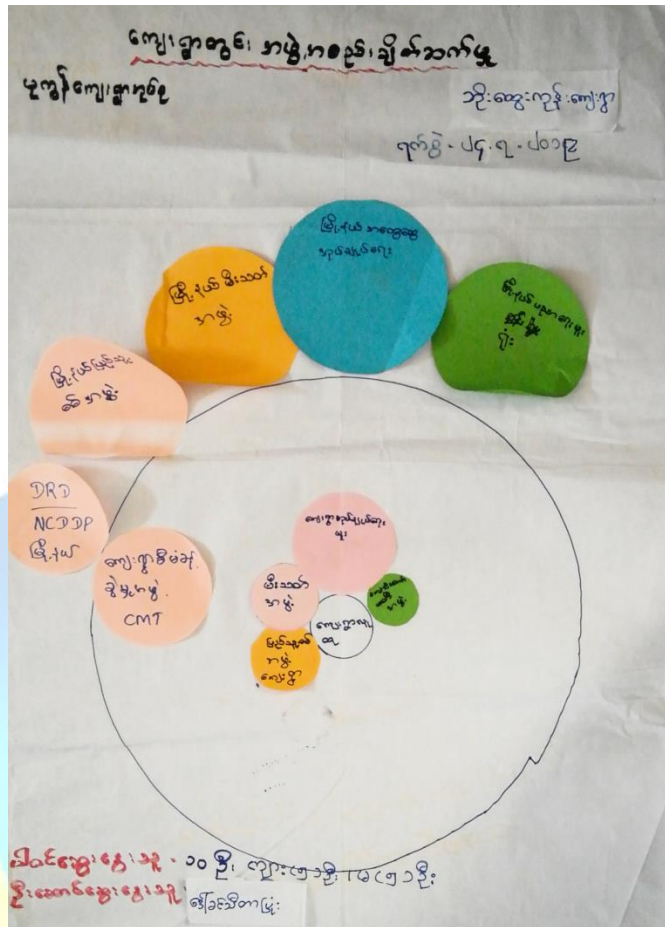 ကျေးရွာတွင်း အဖွဲ့အစည်းချိတ်ဆက်မှု
မူကွန်ကျေးရွာအုပ်စု
ဘိုးထွေးကုန်းကျေးရွာ
ရက်စွဲ - ၂၄.၇.၂၀၁၉
မြို့နယ် အထွေထွေ
အုပ်ချုပ်ရေး
မြို့နယ် မီးသတ်
အဖွဲ့
မြို့နယ် ပညာရေးမှူး
ရုံး
မြို့နယ်ပြည်သူ့
စစ်အဖွဲ့
DRD
NCDDP
မြို့နယ်
ကျေးရွာစီမံခန့်
ခွဲမှုအဖွဲ့
CMT
ကျေးရွာအုပ်ချုပ်ရေး
မှူး
မီးသတ်
အဖွဲ့
အဖွဲ့
ကျေးရွာလူ
ထု
ပြည်သူ့စစ်
အဖွဲ့
ကျေးရွာ
ပါဝင်ဆွေးနွေးသူ - ၁၀ ဦး ကျား(၅)ဦး၊ မ(၅)ဦး
ဦးဆောင်ဆွေးနွေးသူ
ဒေါ်ခင်သီတာမြိုး